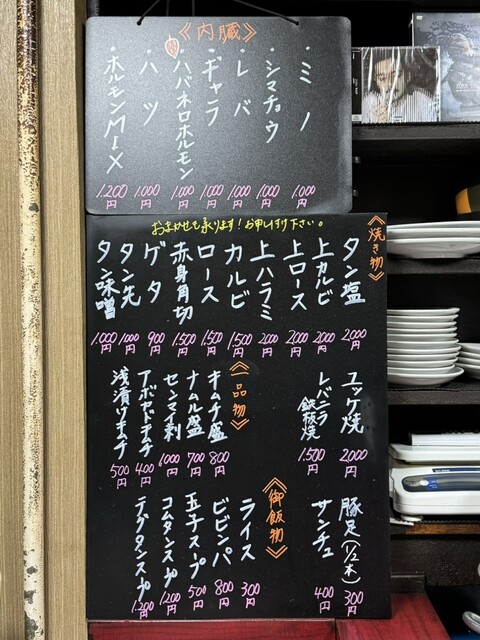 《内臓》
・ミノ 1.000円
・シマチョウ 1.000円
・レバ 1.000円
・ギャラ 1.000円
・ハバネロホルモン 1.000円
・ハツ 1.000円
・ホルモンMIX 1.200円
おまかせも承ります!お申し付け下さい。
《焼き物》
タン塩 2,000円
上カルビ 2,000円
上ロース 2,000円
上ハラミ 2,000円
カルビ 1,500円
ロース 1,500円
赤身角切 1,500円
ゲタ 900円
タン先 1000円
タン味噌 1,000円
ユッケ焼 2,000円
レバニラ鉄板焼 1.500円
豚足(1/2本) 300円
サンチュ 400円
《一品物》
キムチ盛 800円
ナムル盛 700円
センマイ刺 1000円
アボカドキムチ 400円
浅漬けキムチ 500円
《御飯物》
ライス 300円
ビビンパ 800円
玉子スープ 500円
コムタンスープ 1.200円
テグタンスープ 1.200円